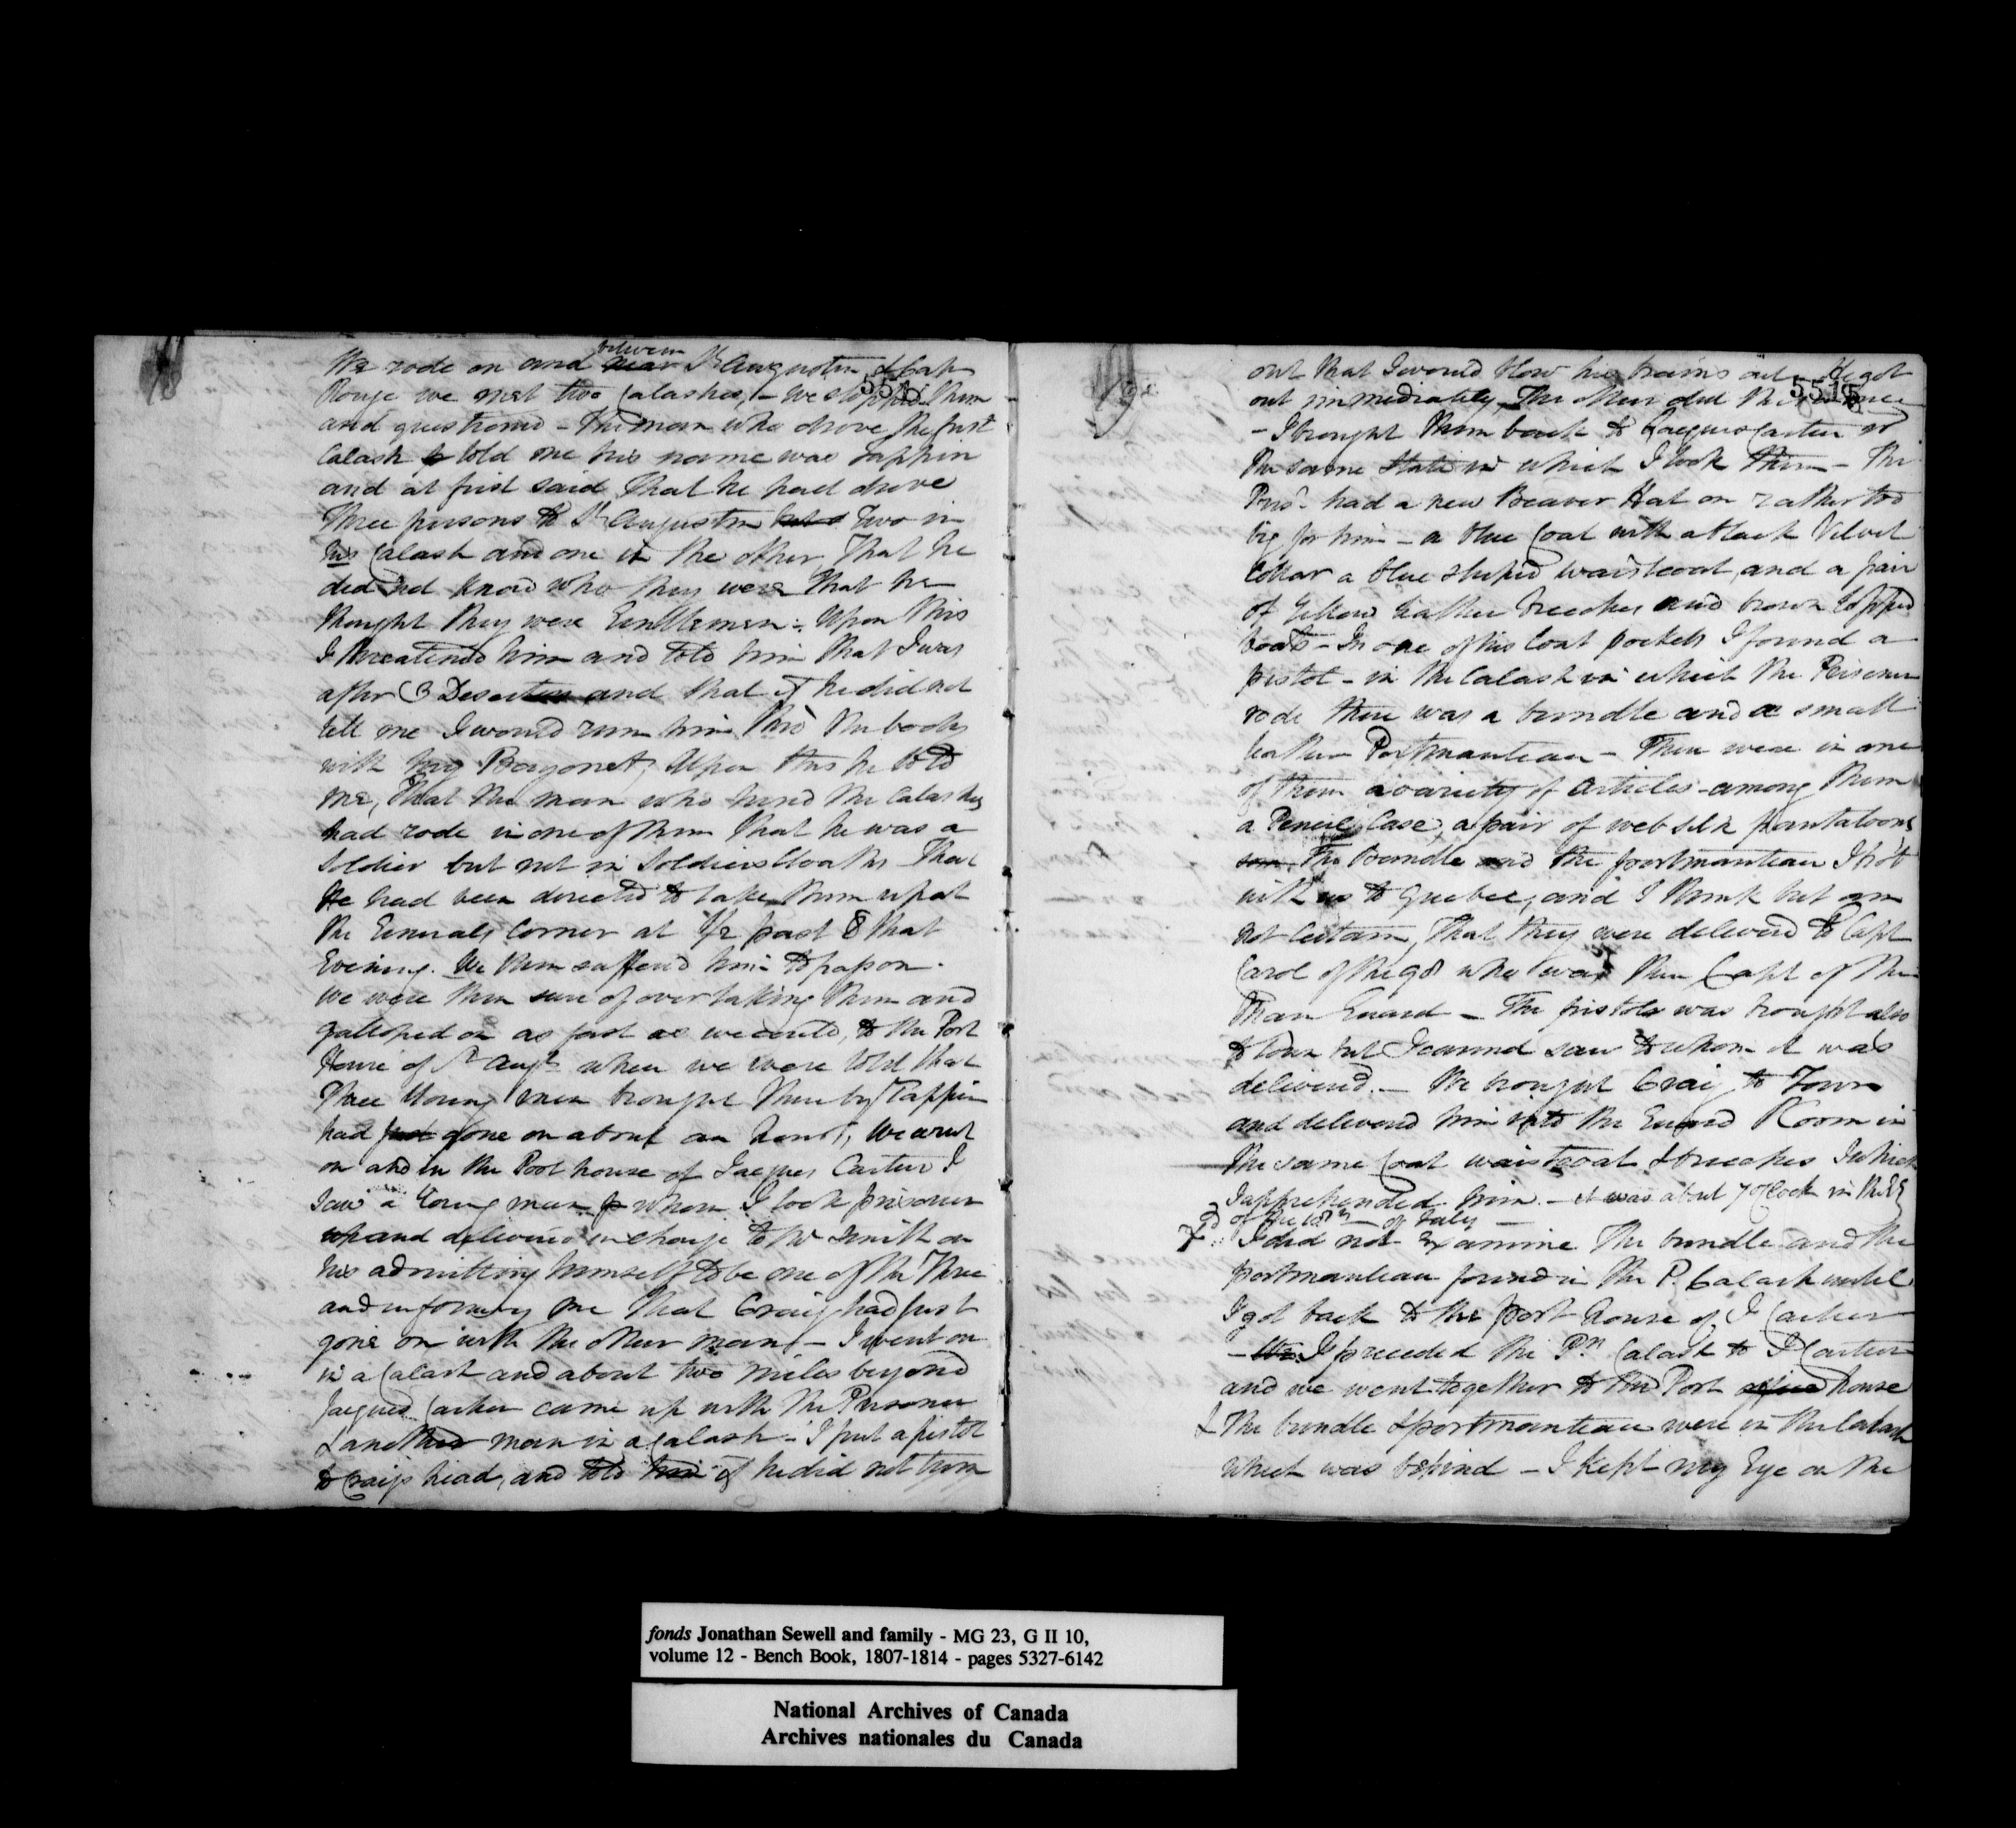 We rode on and near between St Augustin & Cap
Rouge we met two Calashes, – we stopped them
and questioned – the man who drove the first
Calash told me his name was Tappin
and at first said That he had drove
Three persons to St Augustin but Two in
his Calash and one in the other, That he
did not know who they were That he
thought they were Gentlemen – Upon this
I threatened him and told him that I was
after 3 Deserters and that if he did not
tell me I would run him thro' the body
with my Bayonet, Upon this he told
me, That the man who hired the Calashes
had rode in one of them That he was a
Soldier but not in Soldiers Cloaths That
He had been directed to take them up at
the Generals Corner at 1/2 past 8 that
Evening. We then suffered him to pass on.
we were then sure of overtaking them and
galloped on as fast as we could, to the Post
House of St Augn where we were told that
Three Young men brought there by Tappin
had just gone on about an hour, We went
on and in the Post house of Jacques Cartier I
saw a Young man whom I took prisoner
and delivered in charge to Mr Smith on
his admitting himself to be one of the Three
and informing me that Craig had just
gone on with the other man – I went on
in a Calash and about two miles beyond
Jacques Cartier came up with the Prisoner
& another man in a Calash – I put a pistol
to Craigs head, and told him if he did not turn
out that I would blow his brains out – He got
out immediately The other did the
5515
– I brought them back to Jacques Cartier in
the same state in which I took them – The
Prisr had a new Beaver Hat on rather too
big for him – a blue Coat with a black Velvet
Collar a blue striped waistcoat, and a pair
of Yellow leather breeches and brown topped
boots – In one of his Coat pockets I found a
pistol – in the Calash in which the Prisoner
rode there was a bundle and a small
leather Portmanteau – There were in one
of them a variety of articles – among them
a Pencil Case, a pair of web silk pantaloons
The Bundle and the portmanteau I bro't
with us to Quebec, and I think but am
not certain, That they were delivered to Capt
Carol of the 98 who was then Capt of the
Main Guard – The pistols was brought also
to town but I cannot say to whom it was
delivered. – We brought Craig to Town
and delivered him into the Guard Room in
the same Coat waistcoat & breeches in which
I apprehended him. – it was about 7 oClock in the Eg
of the 18th of July –
I did not Examine The bundle and the
portmanteau found in the P. Calash until
I got back to the post house of J Cartier
– I preceded the Prs Calash to J Cartier
and we went together to the Post office house
& The bundle & portmanteau were in the Calash
which was behind – I kept my Eye on the
fonds Jonathan Sewell and family - MG 23, G II 10,
volume 12 - Bench Book, 1807-1814 - pages 5327-6142
National Archives of Canada
Archives nationales du Canada